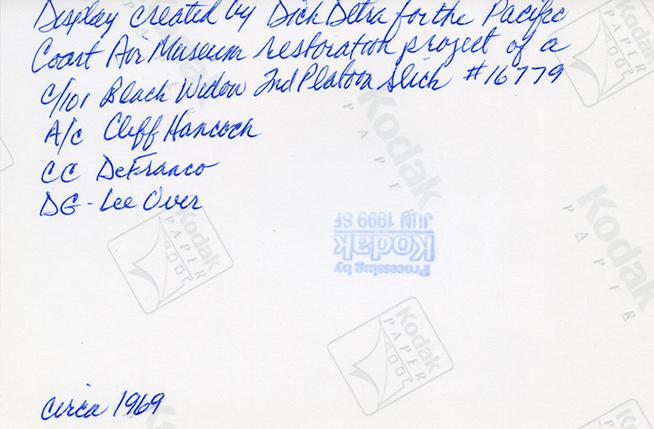 Display created by Dick Detra for the Pacific
Coast Air Museum restoration project of a
C/101 Black Widow 2nd Platoon Slick #16779
A/C Cliff Hancock
CC DeFranco
DG - Lee Over
Processing by
Kodak
JUN 1999 SF
Kodak
PAPER
Kodak
PAPER
Kodak
PAPER
Kodak
PAPER
circa 1969